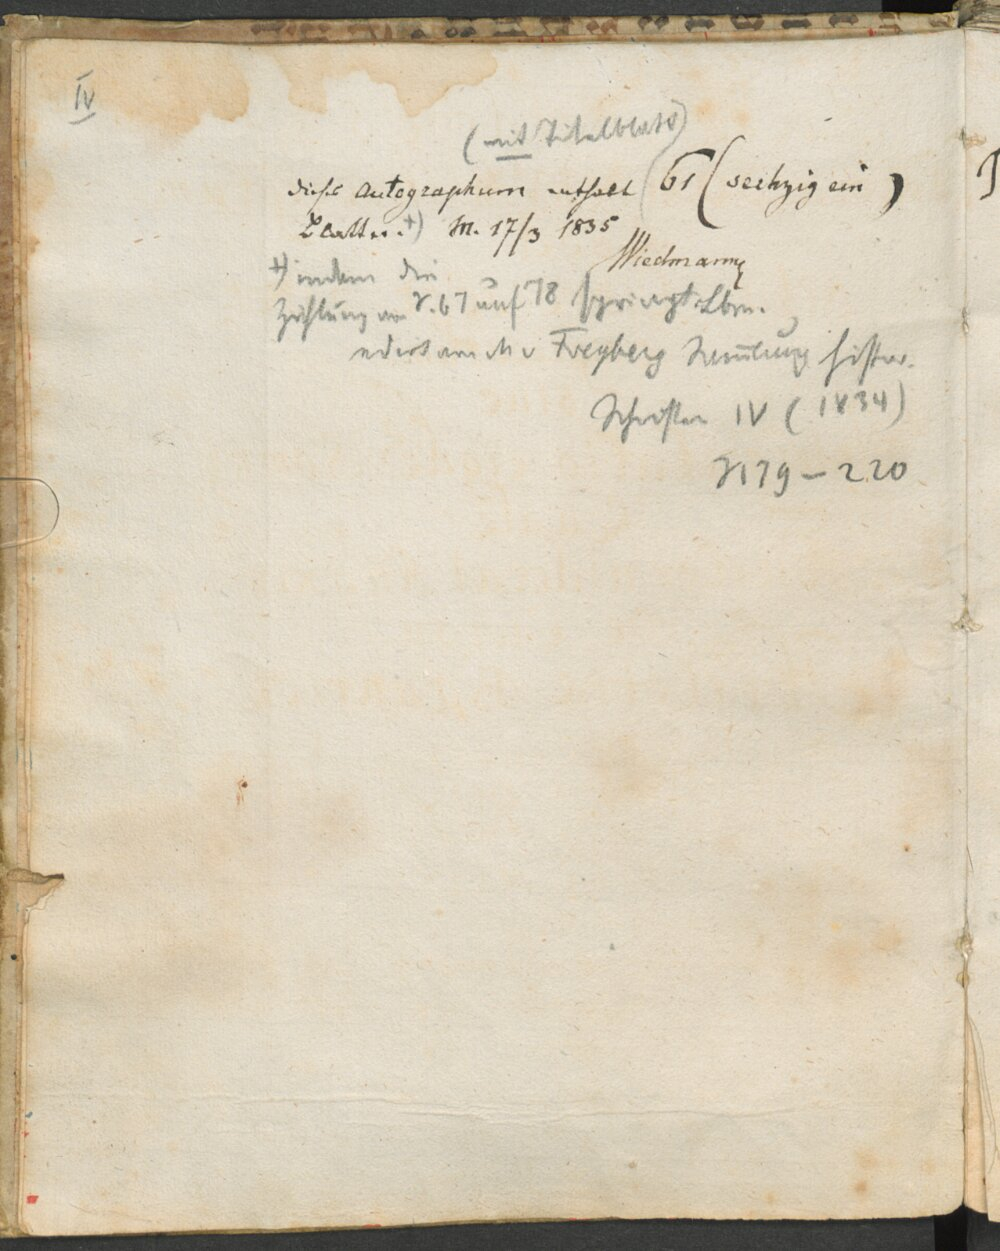 IV
(mit Titelblatt)
dieses Autographum enthält 61 (sechzig ein)
Blätter. +) M. 17/3 1835
Wiedmann
+) indem die
Zählung von S. 67 auf 78 springt.
Freyberg Sammlung histor.
Schriften IV (1834)
S 179 – 220